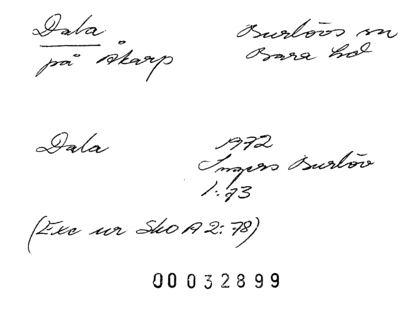 Dala Burlövs sn
på Åkarp Bara hd
Dala 1972
Ingers Burlöv
1:73
(Exc ur SkO A2:78)
00032899